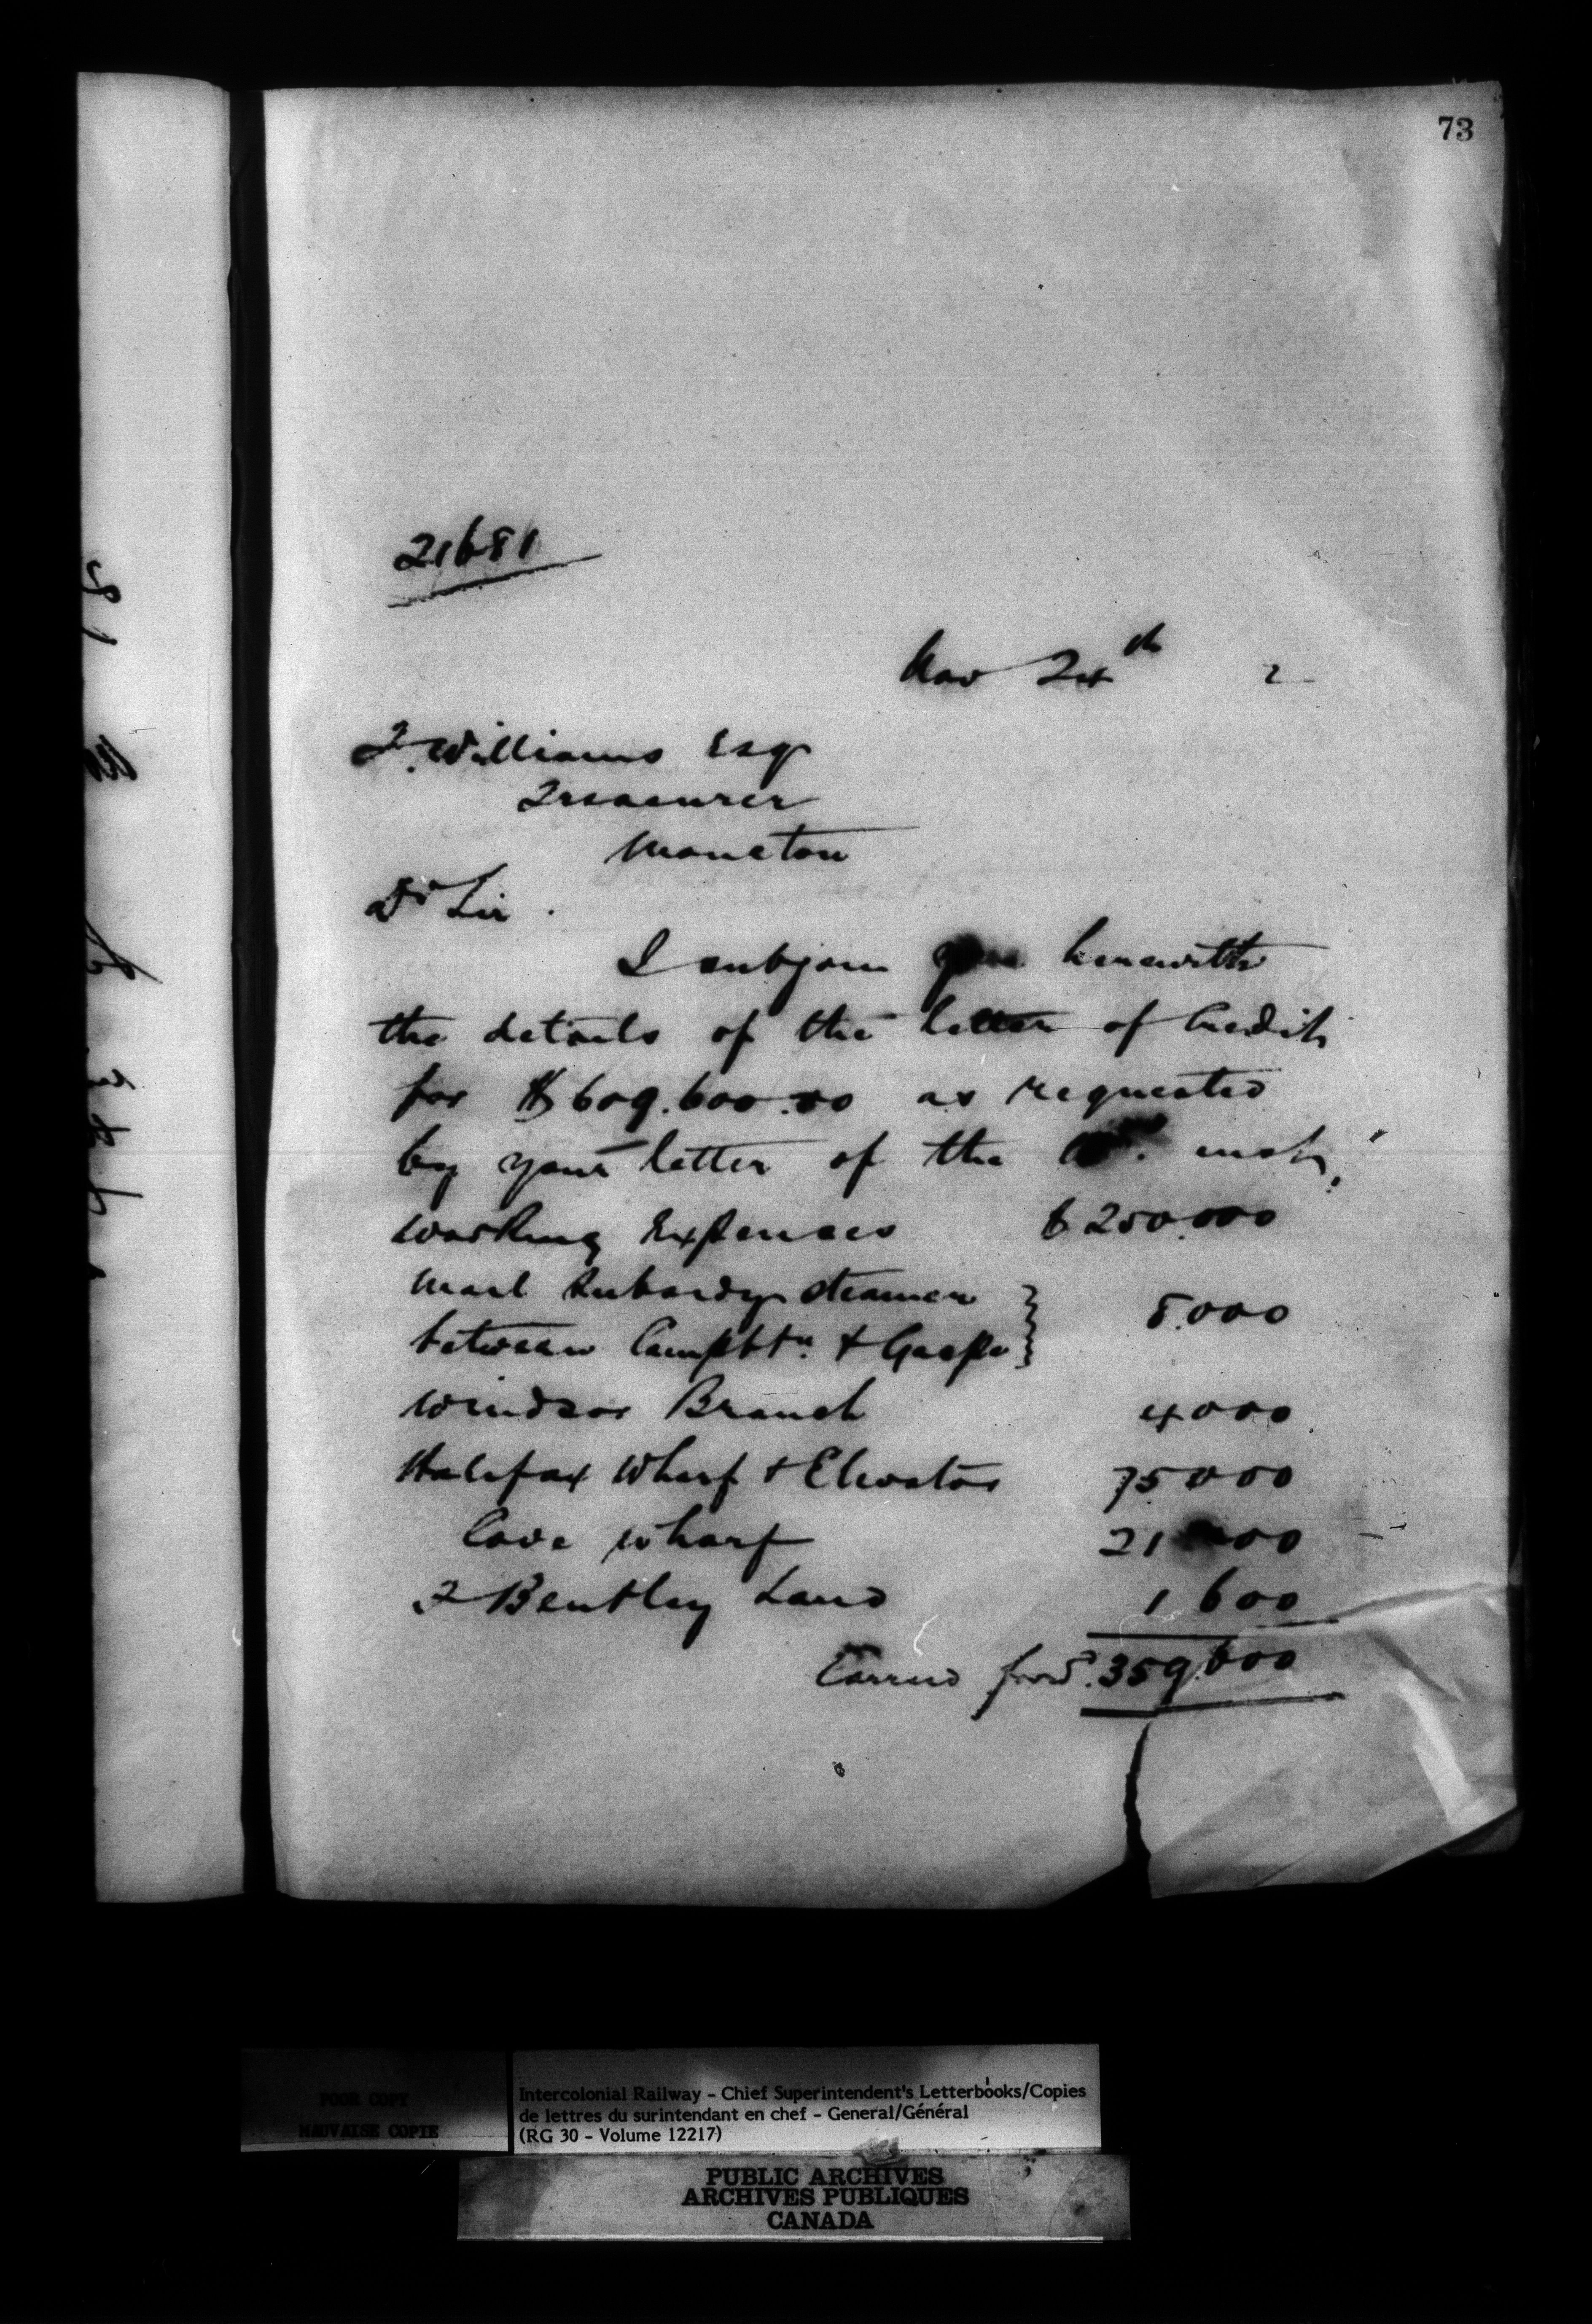 73
21681
Nov 24th 2
T. Williams Esq
Treasurer
Moncton
Dr Sir.
I subjoin herewith
the details of the letter of Credit
for $609.600.00 as requested
by your letter of the inst.
Working Expenses $250.000
Mail Subsidy steamer
between Campbtn. & Gaspe } 8.000
Windsor Branch 4000
Halifax Wharf & Elevator 75000
Cove Wharf 21 000
T Bentley Land 1 600
Carried forwd. 359.600
POOR COPY
MAUVAISE COPIE
Intercolonial Railway - Chief Superintendent's Letterbooks/Copies
de lettres du surintendant en chef - General/Général
(RG 30 - Volume 12217)
PUBLIC ARCHIVES
ARCHIVES PUBLIQUES
CANADA